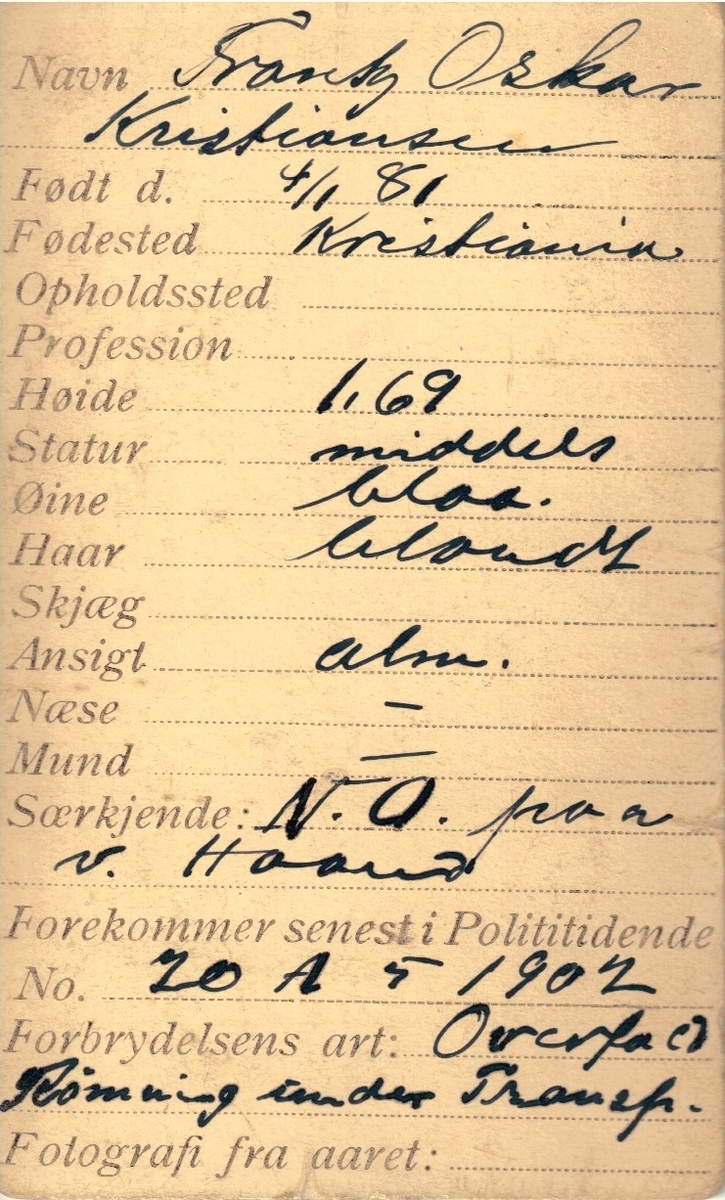 Navn Frantz Oskar
Kristiansen
Født d. 4/1 81
Fødested Kristiania
Opholdssted
Profession
Høide 1,69
Statur middels
Øine blaa.
Haar blondt
Skjæg
Ansigt alm.
Næse —
Mund —
Særkjende: N. O. paa
v. Haand
Forekommer senest i Polititidende
No. 20 A 5 1902
Forbrydelsens art: Overfald
Rømning under Transp.
Fotografi fra aaret: